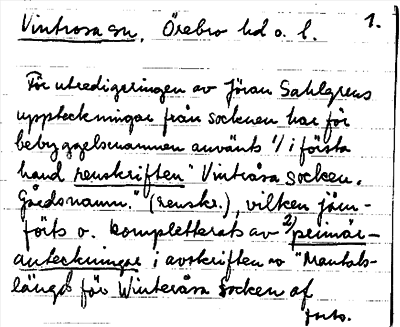 Vintrosa sn, Örebro hd o. l. 1.
För utredigeringen av Jöran Sahlgrens
uppteckningar från socknen har för
bebyggelsenamnen använts 1/ i första
hand renskriften "Vintråsa socken.
Gårdsnamn." (renskr.), vilken jäm-
förts o. kompletterats av 2/ primär-
anteckningar i avskriften av "Mantals-
längd för Winteråsa Socken af